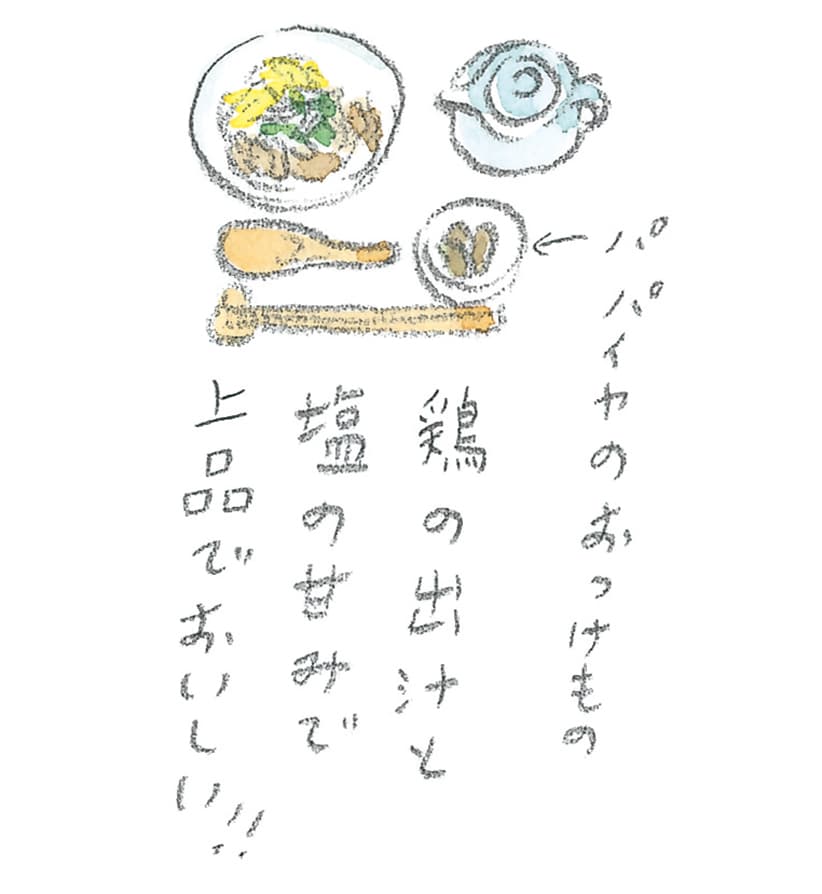 パパイヤのおつけもの
鶏の出汁と
塩の甘みで
上品でおいしい!!